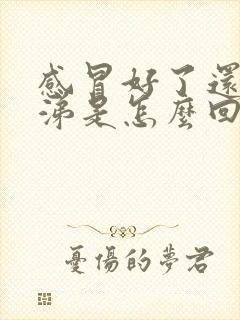 感冒好了還
涕是怎麼回
憂傷的夢君